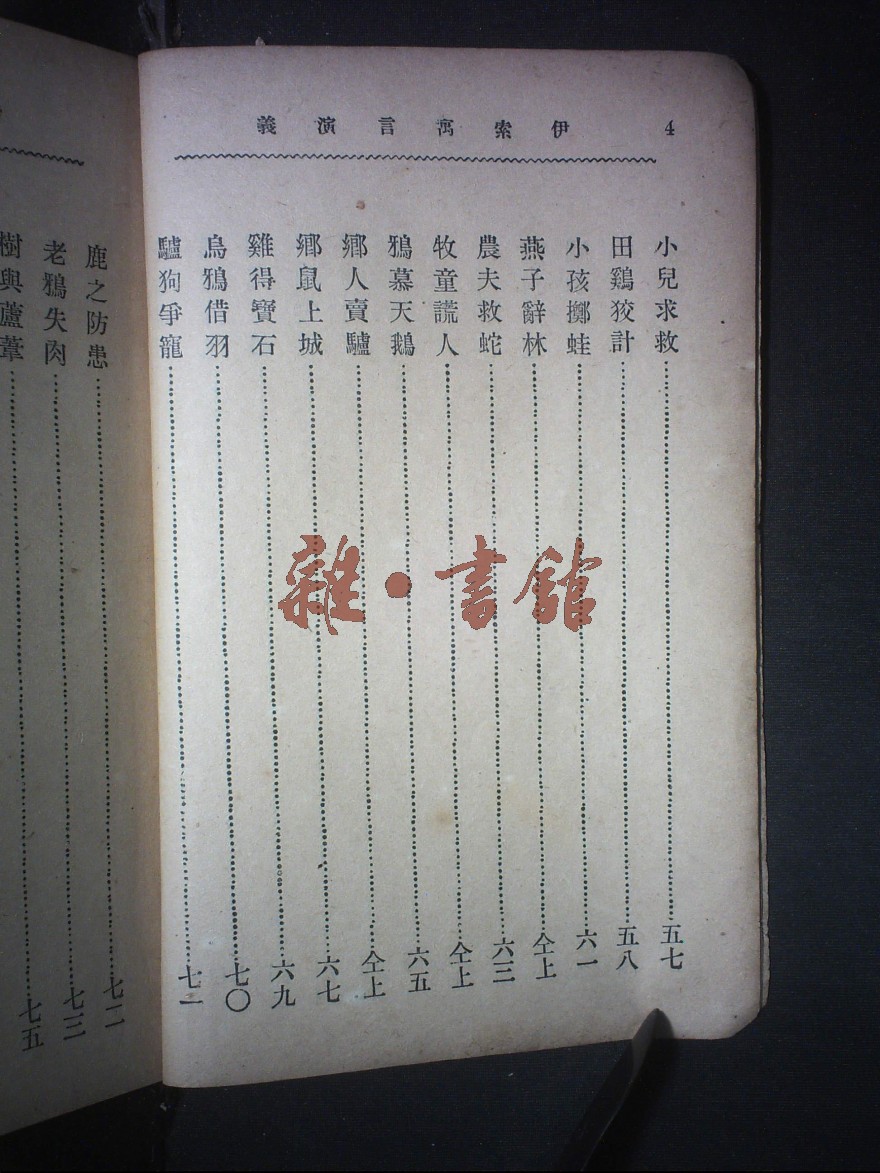 4 伊索寓言演義
小兒求救……五七
田鷄狡計……五八
小孩擲蛙……六一
燕子辭林……仝上
農夫救蛇……六三
牧童謊人……仝上
鴉慕天鵝……六五
鄉人賣驢……仝上
鄉鼠上城……六七
雞得寶石……六九
烏鴉借羽……七〇
驢狗爭寵……七一
鹿之防患……七二
老鴉失肉……七三
樹與蘆葦……七五
雜·書館